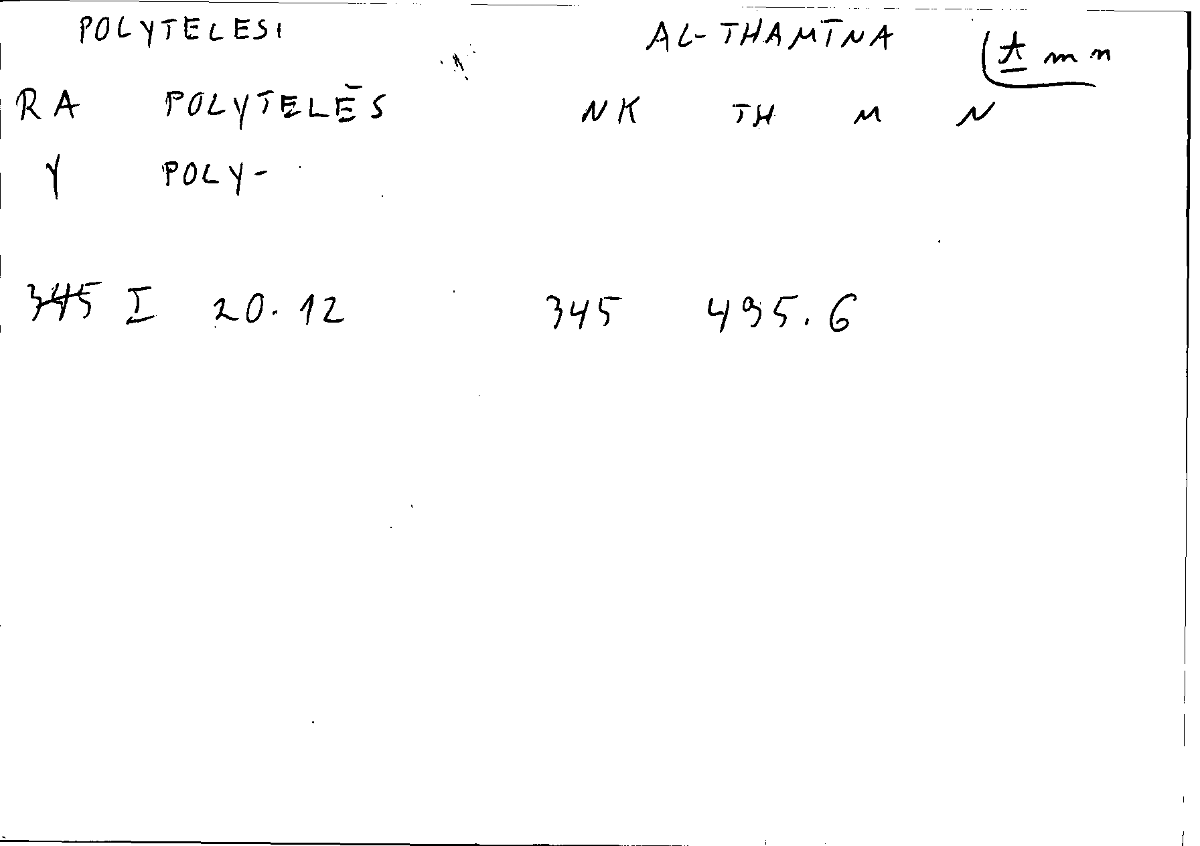 POLYTELESI AL-THAMĪNA (ṯ mn
RA POLYTELĒS NK TH M N
Y POLY-
345 I 20.12 345 495.6